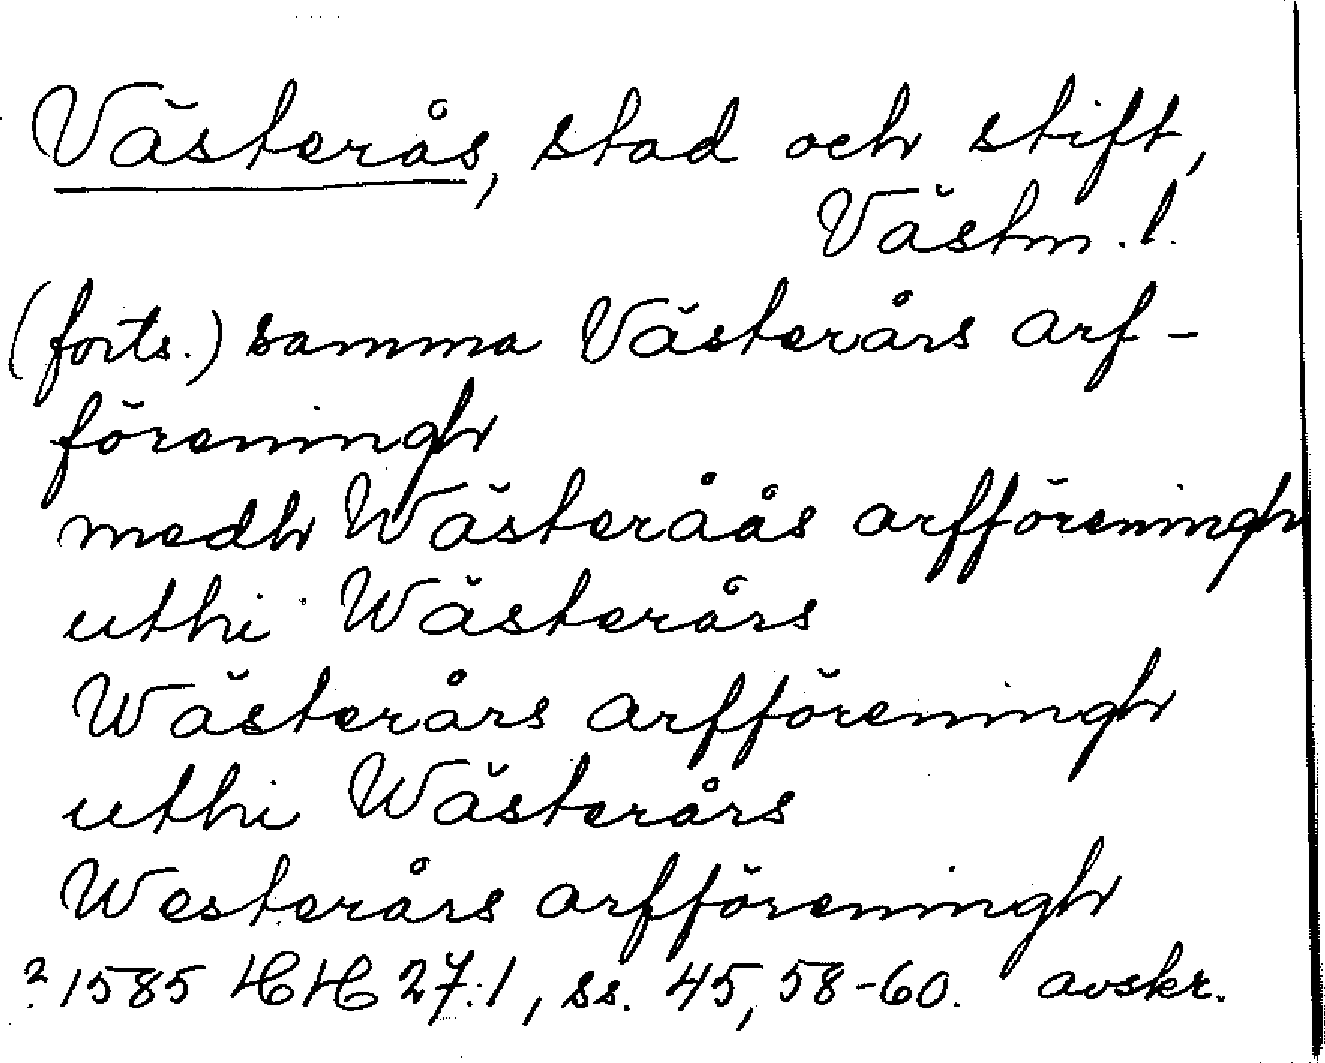 Västerås, stad och stift,
Västm. l.
(forts.) samma Västerårs arf-
föreningh
medh Wästeråås arfföreningh
uthi Wästerårs
Wästerårs arfföreningh
uthi Wästerårs
Westerårs arfföreningh
? 1585 HH 27:1, ss. 45, 58-60. avskr.